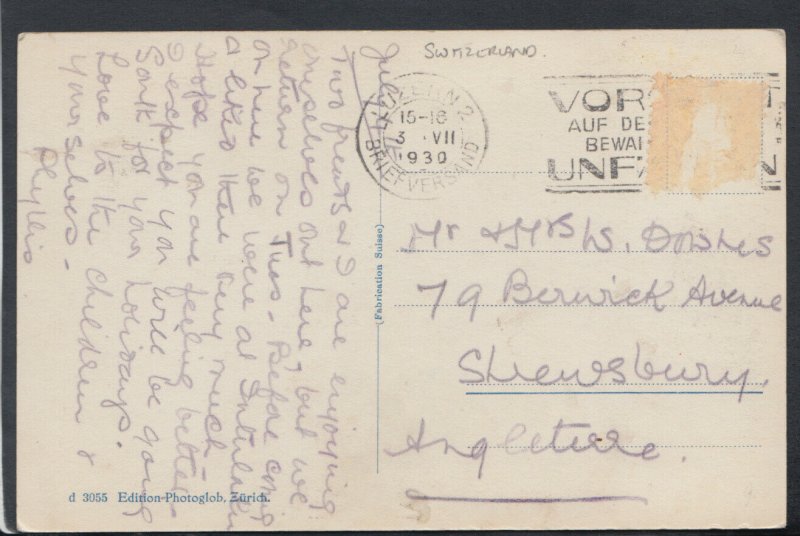 SWITZERLAND.
July
Two friends & I are enjoying
ourselves out here, but we
return on Tues. Before coming
on here we were at Interlaken
& liked there very much
Hope you are feeling better.
I expect you will be going
South for your holidays.
Love to the children &
yourselves -
Phyllis
LUZERN 2
15-16
3 VII
1930
BRIEFVERSAND
VOR
AUF DE
BEWA
UNF
N
(Fabrication Suisse)
Mr & Mrs W. Downes
79 Berwick Avenue
Shrewsbury.
Angleterre.
d 3055 Edition-Photoglob, Zürich.